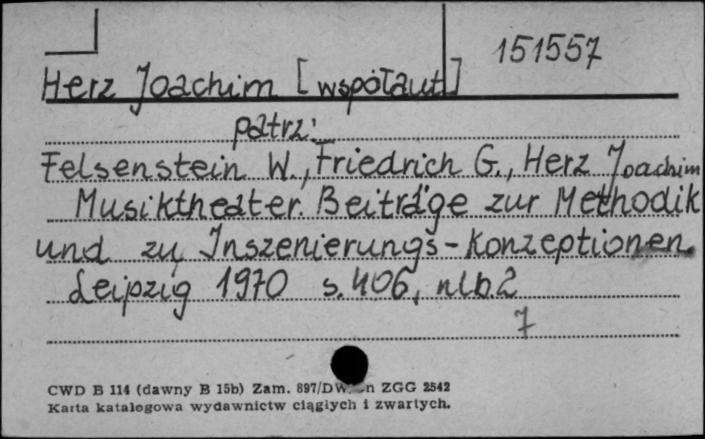 151557
Herz Joachim [współaut]
patrz:
Felsenstein W., Friedrich G., Herz Joachim
Musiktheater. Beiträge zur Methodik
und zu Inszenierungs-Konzeptionen.
Leipzig 1970 s. 406, nlb 2
7
CWD B 114 (dawny B 15b) Zam. 897/DW n ZGG 2542
Karta katalogowa wydawnictw ciągłych i zwartych.